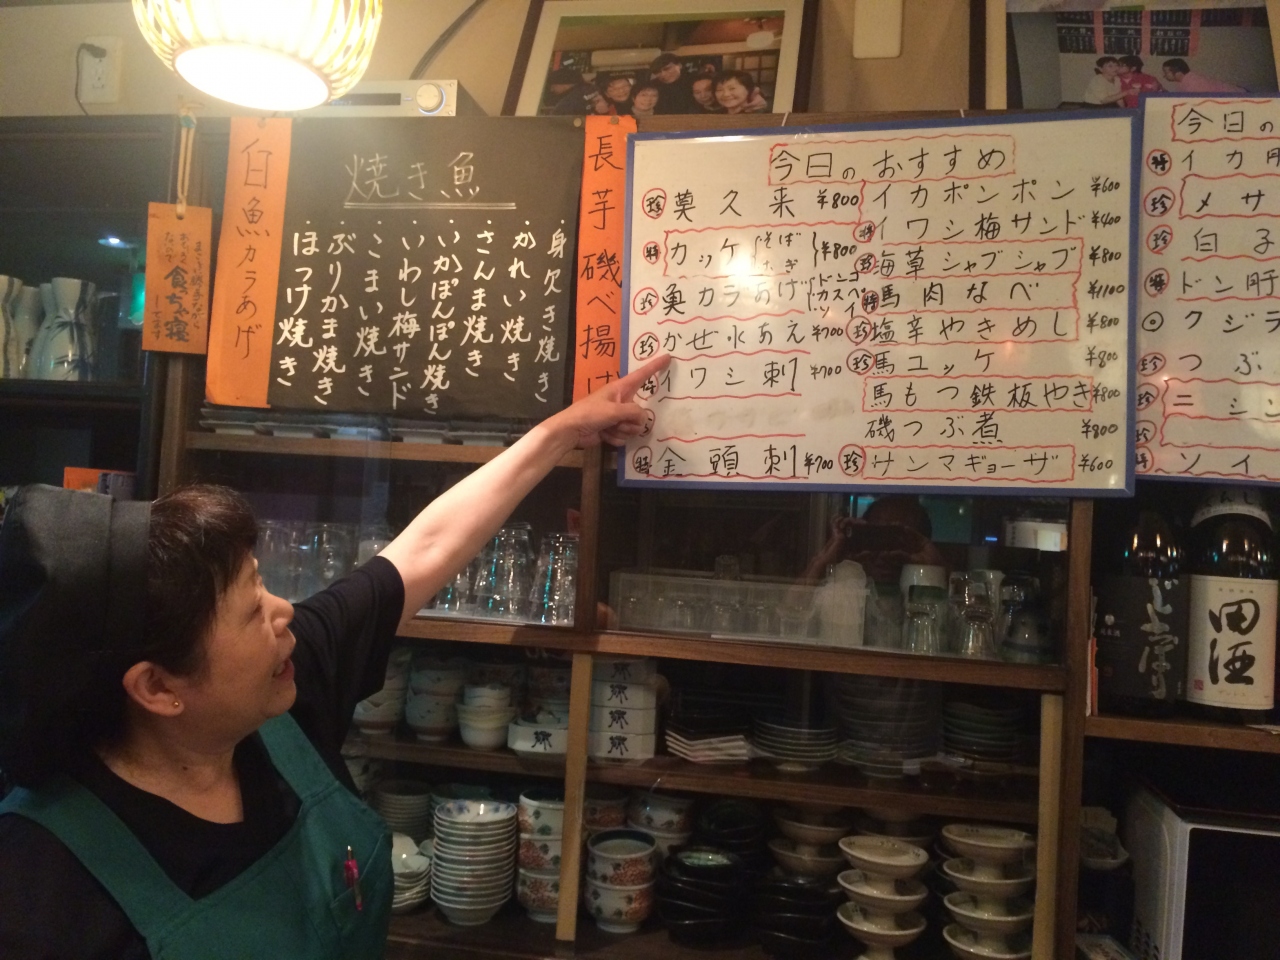 白魚カラあげ
焼き魚
・身欠き焼き
・かれい焼き
・さんま焼き
・いかぽんぽん焼き
・いわし梅サンド
・こまい焼き
・ぶりかま焼き
・ほっけ焼き
長芋磯べ揚げ
食っちゃ寝
今日のおすすめ
珍 莫久来 ¥800
特 カッケ そば むぎ ¥800
珍 魚カラあげ ドンコ カスベ ソイ
珍 かぜ水あえ ¥700
特 イワシ刺 ¥700
特 金頭刺 ¥700
イカポンポン ¥600
特 イワシ梅サンド ¥400
珍 海草シャブシャブ ¥800
特 馬肉なべ ¥1100
珍 塩辛やきめし ¥800
珍 馬ユッケ ¥800
馬もつ鉄板やき ¥800
磯つぶ煮 ¥800
珍 サンマギョーザ ¥600
今日の
特 イカ
珍 メサ
珍 白子
特 ドン肝
クジラ
珍 つぶ
珍 ニシン
特 ソイ
田酒